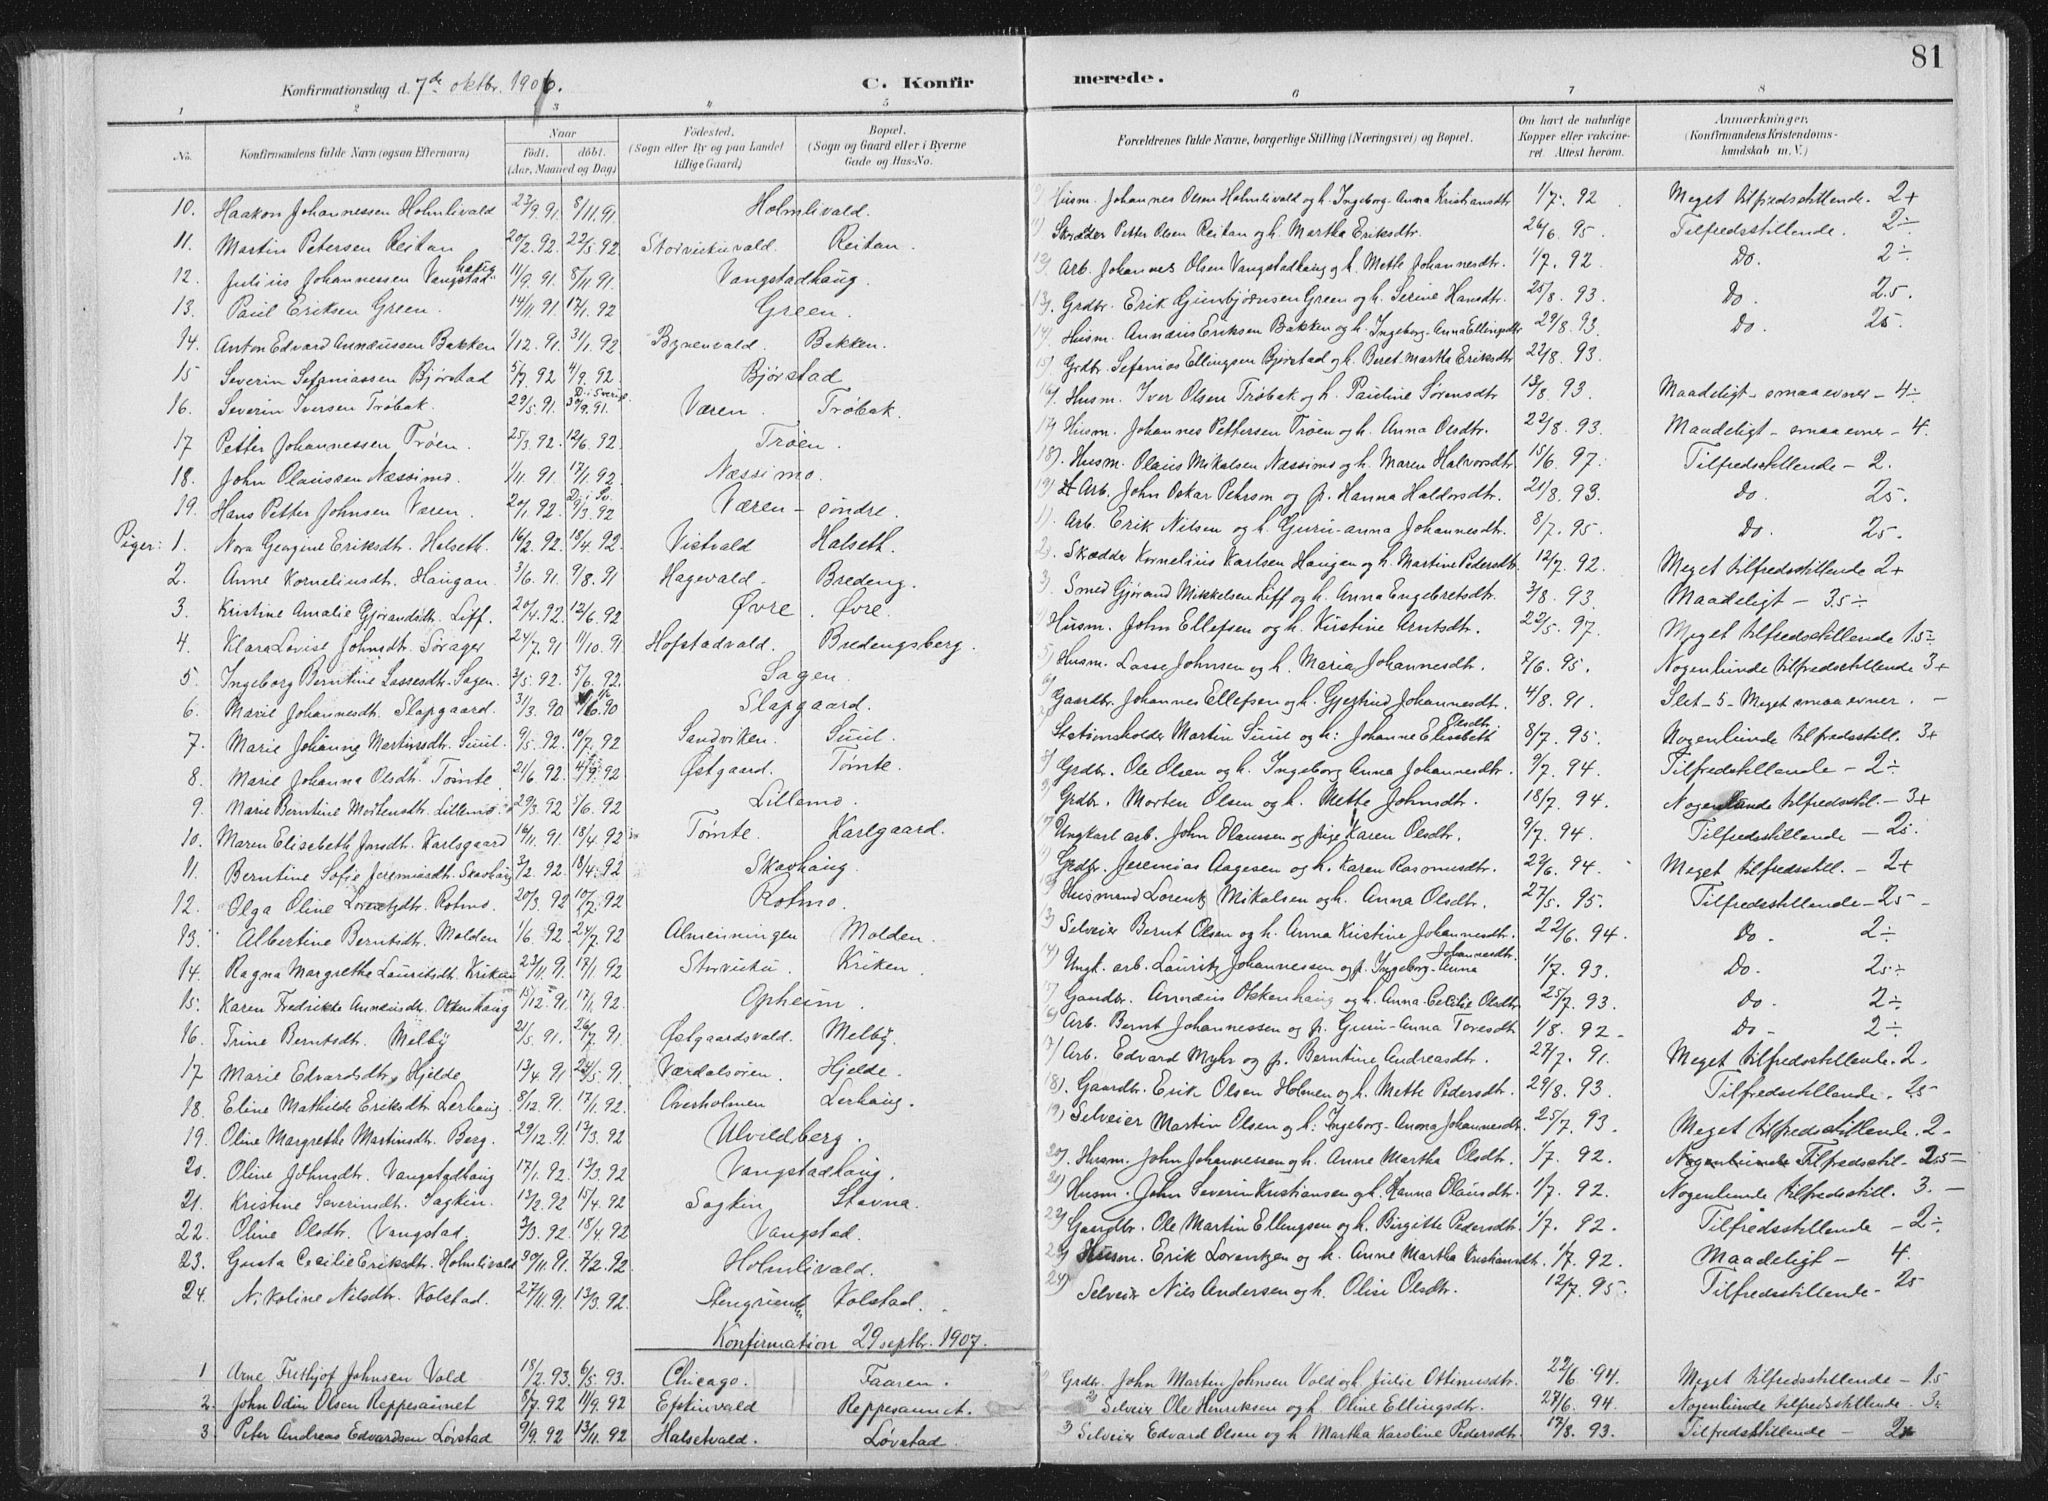 81
Konfirmationsdag d. 7de oktbr. 1906. C. Konfirmerede.
1 2 3 4 5 6 7 8
No. Konfirmandens fulde Navn (ogsaa Efternavn) Naar født. døbt. (Aar, Maaned og Dag) Fødested. (Sogn eller By og paa Landet tillige Gaard) Bopæl. (Sogn og Gaard eller i Byerne Gade og Hus-No. Forældrenes fulde Navne, borgerlige Stilling (Næringsvei) og Bopæl. Om havt de naturlige Kopper eller vakcineret. Attest herom. Anmærkninger. (Konfirmandens Kristendomskundskab m. V.)
10. Haakon Johannessen Holmlivald 23/9. 91. 8/11. 91. Holmlivald. Husm. Johannes Olsen Holmlivald og h. Ingeborg Anna Kristiansdtr 1/7. 92 Meget tilfredsstillende. 2+
11. Martin Petersen Reitan 20/2. 92. 22/5. 92 Storvukuvald. Reitan. Skrædder Petter Olsen Reitan og h. Martha Eriksdtr. 26/6. 95. Tilfredsstillende. 2÷
12. Julius Johannessen Vangstadhaug 11/9. 91. 8/11 91. Vangstadhaug. 12) Arb. Johannes Olsen Vangstadhaug og h. Mette Johannesdtr. 1/7. 92. Do. 2÷
13. Paul Eriksen Green. 14/11. 91. 17/1. 92 Green. 13). Grdbr. Erik Gunbjørnsen Green og h. Serine Hansdtr. 25/8. 93. Do. 2.5.
14. Anton Edvard Annæussen Bakken 1/12. 91. 31/1. 92. Bynenvald. Bakken. 14) Husm. Annæus Eriksen Bakken og h. Ingeborg Anna Ellingsdtr 29/8. 93. Do. 25.
15 Severin Sefaniassen Bjørstad 5/7. 92 4/9. 92. Bjørstad 15) Grdbr. Sefanias Ellingsen Bjørstad og h. Beret Martha Eriksdtr 22/8. 93.
16. Severin Iversen Trøbak. 29/5. 91. D. i Sverige. 30/9. 91. Væren. Trøbak. 16) Husm. Iver Olsen Trøbak og h. Pauline Sørensdtr 13/8. 93. Maadeligt - smaa evner - 4÷
17 Petter Johannessen Trøen. 25/3. 92. 12/6. 92. Trøen. 17) Husm. Johannes Pettersen Trøen og h. Anna Olsdtr. 22/8. 93. Maadeligt - smaa evner - 4.
18. John Olaussen Næssimo 1/11. 91. 17/1. 92. Næssimo. 18). Husm. Olaus Mikalsen Næssimo og h. Maren Halvorsdtr. 15/6. 97. Tilfredsstillende - 2.
19. Hans Petter Johnsen Væren. 20/1. 92. D. i Sv. 9/3. 92 Væren - søndre. 19) Arb. John Oskar Pehrson og p. Hanna Haldorsdtr. 21/8. 93. Do. 25.
Piger: 1. Nora Georgine Eriksdtr. Halseth. 16/2. 92. 18/4. 92. Vistvald Halseth. 1). Arb. Erik Nilsen og h. Guru-anna Johannesdtr. 8/7. 95. Do. 25.
2. Anne Korneliusdt. Haugan. 3/6. 91. 9/8. 91 Hagevald. Bredeng. 2). Skrædder Kornelius Karlsen Haugen og h. Martine Pedersdtr. 12/7. 92. Meget tilfredsstillende 2+
3. Kristine Amalie Gjørandsdt. Liff. 20/4. 92. 12/6. 92 Øvre. Øvre. 3) Smed Gjørand Mikkelsen Liff og h. Anna Engebretsdtr. 3/8. 93. Maadeligt - 3.5÷
4. Klara Lovise Johnsdt. Sorager 24/7. 91 11/10. 91 Hofstadvald. Bredengsberg. Husm. John Ellefsen og h. Kirstine Arntsdtr. 22/5. 97. Meget tilfredsstillende 1.5÷
5. Ingeborg Berntine Lassesdt. Sagen. 3/5. 92. 5/6. 92. Sagen. 5) Husm. Lasse Johnsen og h. Maria Johannesdtr. 7/6. 95. Nogenlunde tilfredsstillende 3+
6. Marie Johannesdt. Slapgaard. 31/3. 90 90 Slapgaard. 6) Gaardbr. Johannes Ellefsen og h. Gjertrud Johannesdtr. 4/8. 91. Slet - 5 - Meget smaa evner. -
7. Marie Johanne Martinsdt. Suul. 9/5. 92. 10/7. 92 Sandviken. Suul. Stationsholder Martin Suul og h: Johanne Elisabeth Olsdtr. 8/7. 95. Nogenlunde tilfredsstill. 3+
8. Marie Johanna Olsdt. Tømte. 21/6. 92. 4/9. 92 Østgaard. Tømte. 8) Grdbr. Ole Olsen og h. Ingeborg Anna Johannesdtr. 9/7. 94. Tilfredsstillende - 2÷
9. Marie Berntine Mortensdtr. Lillemo. 29/3. 92 5/6. 92 Lillemo. 9) Grdbr. Morten Olsen og h. Mette Johnsdtr. 18/7. 94. Nogenlunde tilfredsstil. - 3+
10. Maren Elisebeth Jonsdt. Karlsgaard 16/11. 91. 18/4. 92 Tømte. Karlgaard. Ungkarl arb. John Olaussen og pige Karen Olsdtr. 9/7. 94. Tilfredsstillende - 2÷.
11. Berntine Sofie Jeremiasdt. Skavhaug 3/2. 92 18/4. 92 Skavhaug. Grdbr. Jeremias Aagesen og h. Karen Rasmusdtr. 22/6. 94. Meget tilfredsstill. - 2+
12. Olga Oline Lorentzdt. Rotmo. 20/3. 92 10/7. 92 Rotmo. Husmand Lorentz Mikalsen og h. Anna Olsdtr. 27/5. 95. Tilfredsstillende - 25 -
13. Albertine Berntsdt. Molden 1/6. 92. 24/7. 92 Almenningen Molden. 13) Selveier Bernt Olsen og h. Anna Kristine Johannesdtr. 22/6. 94. Do. 2÷
14. Ragna Margrethe Lauritsdt. Kriken 23/11. 91. 17/1. 92 Storvuku. Kriken. 14) Ungk. arb. Lauritz Johannessen og p. Ingeborg Anna Johannesdtr. 1/7. 93. Do. 25÷
15. Karen Fredrikke Annæusdt. Okkenhaug 15/12. 91. 17/1. 92. Opheim. Gaardbr. Annæus Okkenhaug og h. Anna Cecilie Olsdtr 25/7. 93. Do 2÷
16. Trine Berntsdt. Melby 21/5. 91. 26/7. 91. Østgaardsvald. Melby. 6) Arb. Bernt Johannessen og p. Guru-Anna Toresdt. 1/8. 92 - Do - 2÷
17 Marie Edvardsdtr. Hjelde 13/4. 91 24/5. 91. Værdalsøren. Hjelde. 7) Arb. Edvard Myhr og p. Berntine Andreasdtr. 27/7. 91. Meget tilfredsstillende. 2-
18. Eline Mathilde Eriksdtr. Lerhaug 8/12. 91. 17/1. 92. Overholmen Lerhaug. 18). Gaardbr. Erik Olsen Holmen og h. Mette Pedersdtr. 29/8. 93. Tilfredsstillende. 25
19. Oline Margrethe Martinsdtr. Berg. 29/12. 91. 13/3. 92 Ulvildberg. 19) Selveier Martin Olsen og h: Ingeborg Anna Johannesdtr. 25/7. 93. Meget tilfredsstillende. 2-
20. Oline Johnsdtr. Vangstadhaug 17/1. 92. 13/3. 92 Vangstadhaug. 20). Husm. John Johannessen og h. Anne Martha Olsdtr. 1/7. 92. Nogenlunde Tilfredsstil- 2.5-
21. Kristine Severinsdt. Sagkin. 13/2. 92 15/4. 92 Sagkin Stavna. 21) Husm. John Severin Kristiansen og h. Hanna Olausdtr. 1/7. 92. Nogenlunde tilfredsstill. 3. -
22. Oline Olsdtr. Vangstad. 3/3. 92. 18/4. 92 Vangstad. 22) Gaardbr. Ole Martin Ellingsen og h. Birgitte Pedersdtr. 1/7. 92. Tilfredsstillende - 2÷
23. Gusta Cecilie Eriksdtr. Holmlivald 30/11. 91. 7/2. 92. Holmlivald. 23) Husm. Erik Lorentzen og h. Anne Martha Kristiansdt. 1/7. 92. Maadeligt - 4.
24. Nikoline Nilsdtr. Kolstad. 27/11. 91. 13/3. 92. Stengrunden Kolstad. 24) Selveier Nils Andersen og h. Olise Olsdtr. 12/7. 95. Tilfredsstillende - 25
Konfirmation 29 septbr. 1907.
1 Arne Frithjof Johnsen Vold 18/2. 93. 6/5. 93. Chicago. Faaren. Grdbr. John Martin Johnsen Vold og h. Julie Ottinusdtr. 22/6. 94. Meget tilfredsstillende - 1.5
2. John Odin Olsen Reppesaunet 8/7. 92 11/9. 92 Efstinvald Reppesaunet. 2) Selveier Ole Henriksen og h. Oline Ellingsdtr. 27/6. 94. Nogenlunde tilfredsstillende. 3÷
3. Peter Andreas Edvardsen Løvstad 9/9. 92 13/11. 92 Halsetvald. Løvstad. 3) Selveier Edvard Olsen og h Martha Karoline Pedersdtr. 17/8. 93. Tilfredsstillende - 2+